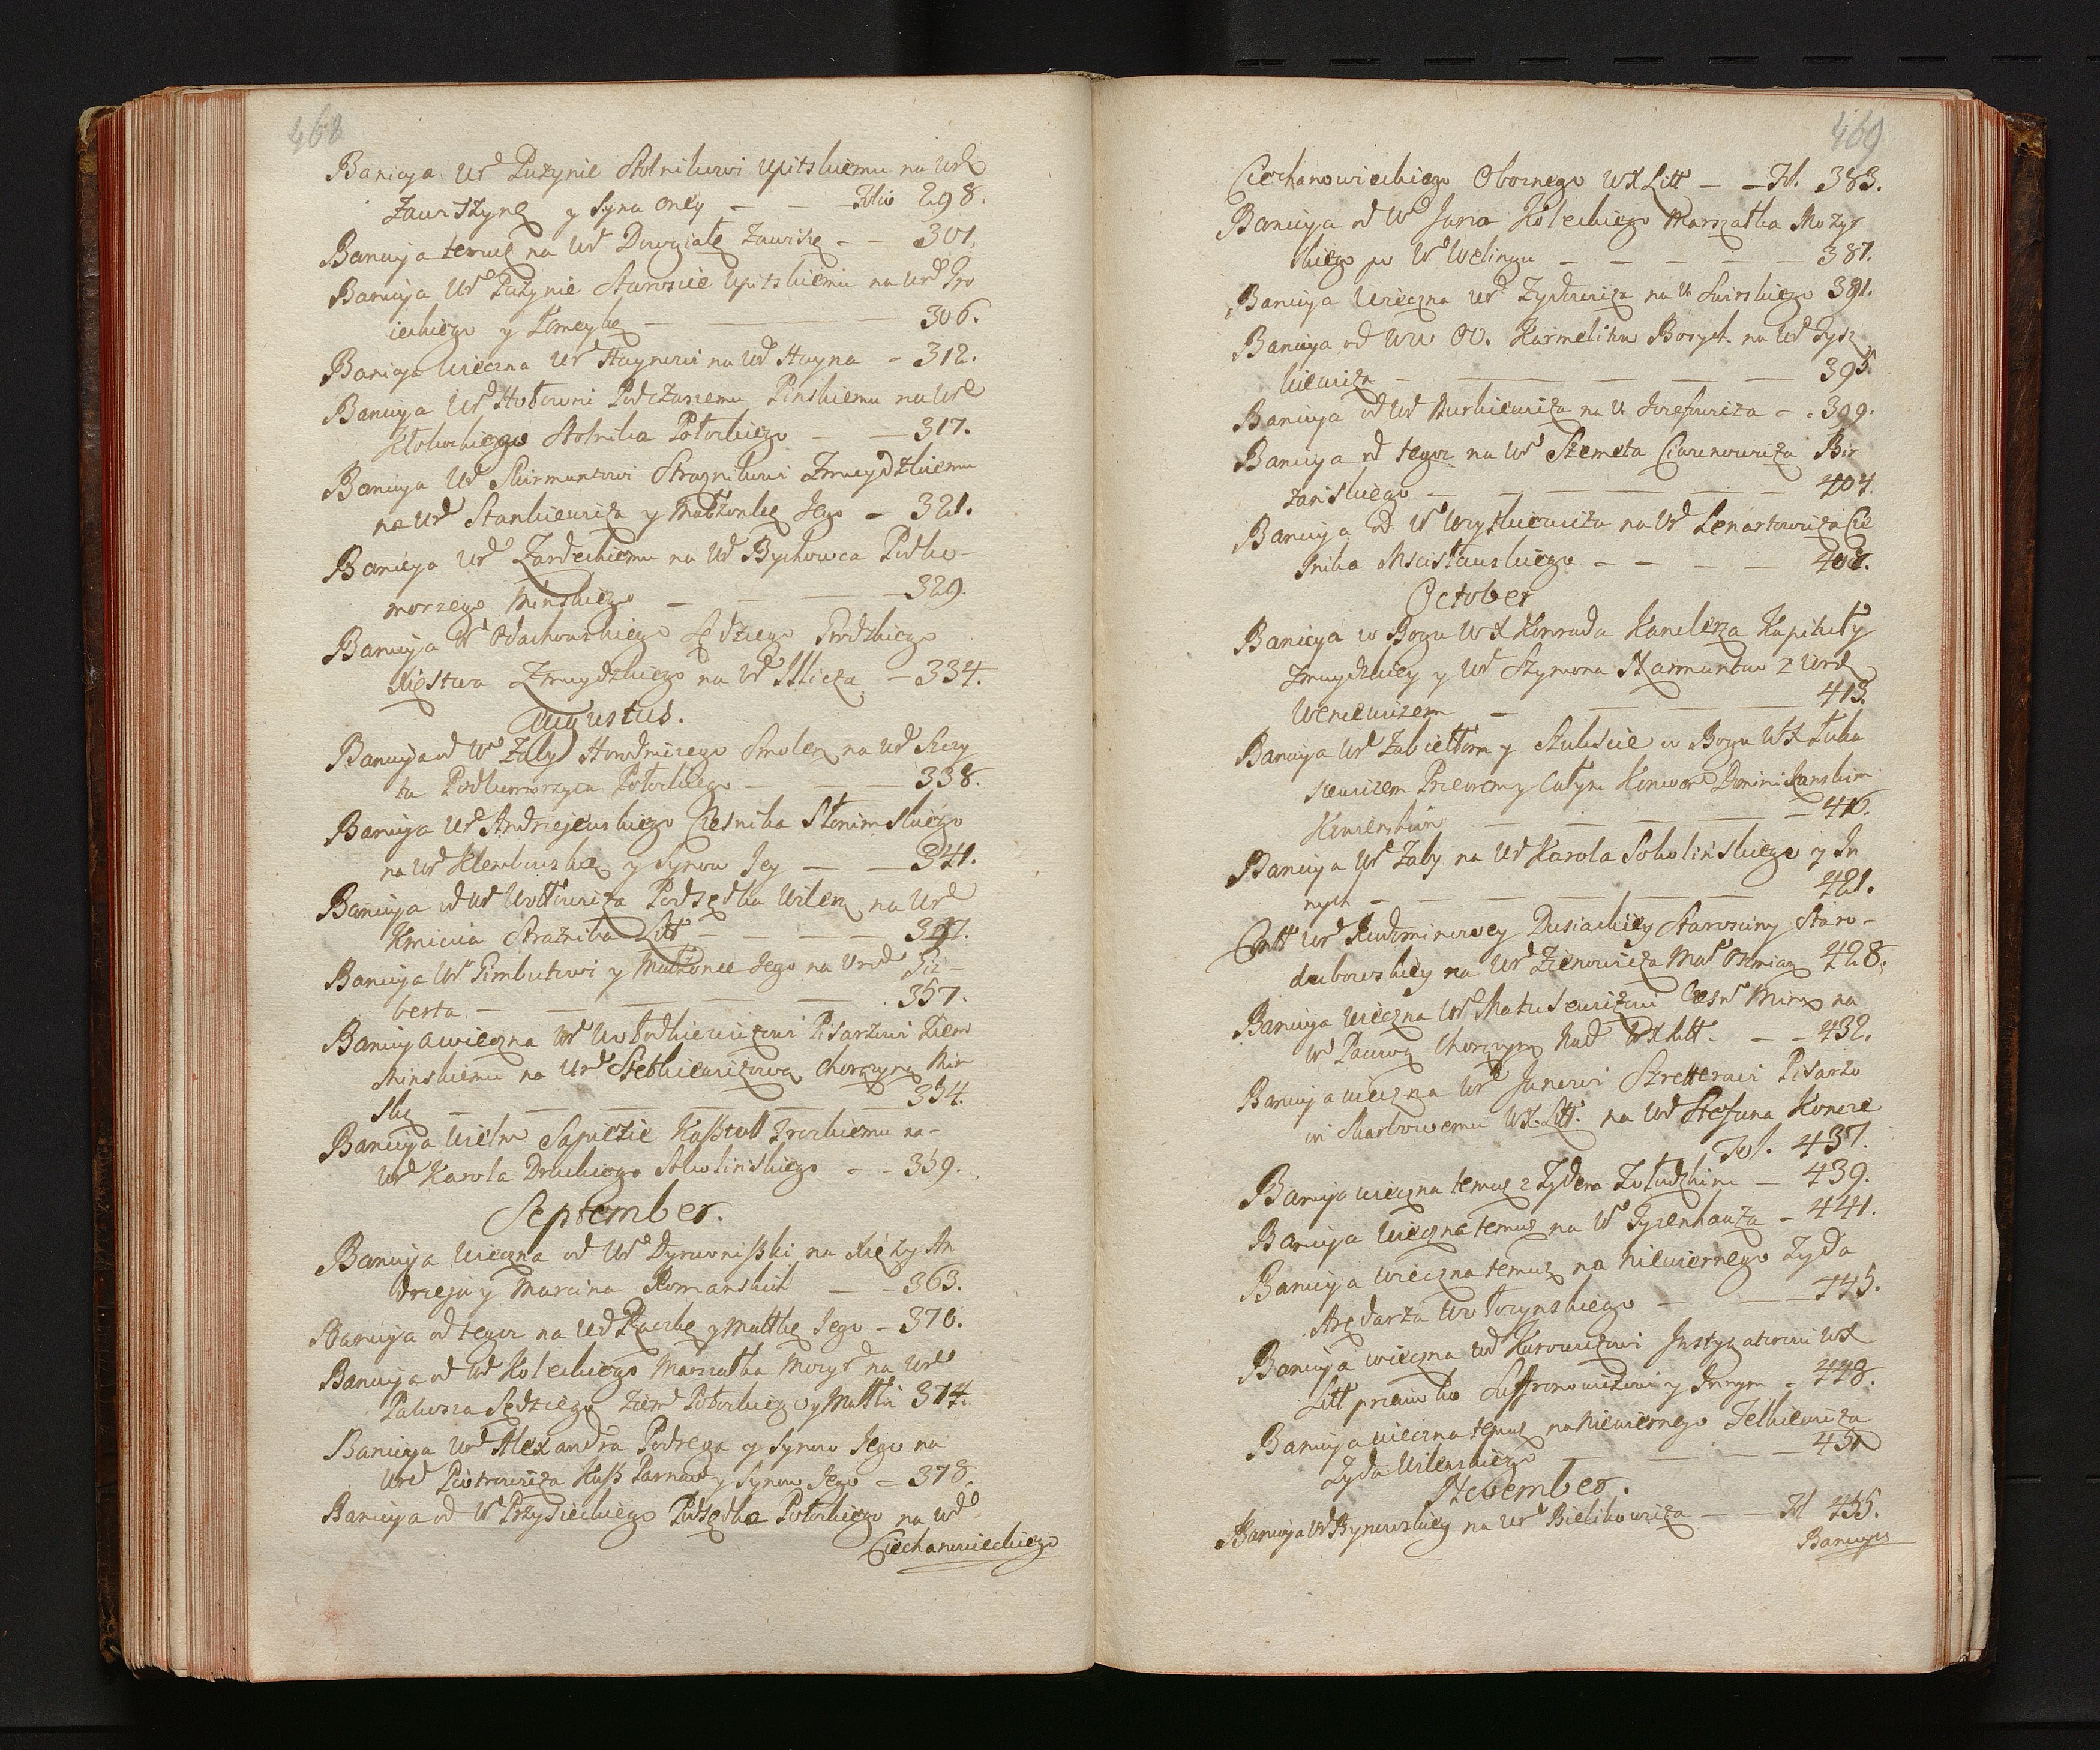 468
Banicya Ur Puzynie Stolnikowi Upitskiemu na Ur
Zawiszynę y Syna oney — — Folio 298.
Banicya temuż na Ur Dowgiałę Zawiszę — — 301.
Banicya Ur Puzynie Staroscie Upitskiemu na Ur Gro
ieckiego y Pomeykę — — 306.
Banicya wieczna Ur Haynowi na Ur Hayna — 312.
Banicya Ur Hołowni Podczaszemu Pinskiemu na Ur
Kłokockiego Stolnika Połockiego — — 317.
Banicya Ur Skirmuntowi Straznikowi Zmuydzkiemu
na Ur Stankiewicza y Małżonkę Jego — 321.
Banicya Ur Zardeckiemu na Ur Bychowca Podko-
morzego Minskiego — — — 329.
Banicya Ur Odachowskiego Sędziego Grodzkiego
Xięstwa Zmuydzkiego na Ur Illicza — 334.
Augustus.
Banicya od Ur Zaby Horodniczego Smolen na Ur Szczy
ta Podkomorzyca Połockiego — — — 338.
Banicya Ur Andrzejewskiego Czesnika Słonimskiego
na Ur Klembowską y Synow Jey — — 341.
Banicya od Ur Wołłowicza Podsędka Wilen na Ur
Kmicica Strażnika Litt — — — 347.
Banicya Ur Gimbutowi y Małżonce Jego na Urod Giz-
berta — — — — 357.
Banicya wieczna Ur Wołodkiewiczowi Pisarzowi Ziem
Minskiemu na Ur Stetkiewiczową Chorążynę Min
Ską — — — — 354.
Banicya Wielm Sapiezie Kasztell Trockiemu na-
Ur Karola Druckiego Sokolińskiego — — 359.
September.
Banicya Wieczna od Ur Dyrwonisski na Xięży An
drzeja y Marcina Romanskich — — 363.
Banicya od tegoż na Ur Rzaczkę y Mattkę Jego — 370.
Banicya od Ur Koleckiego Marszałka Mozyr na Ur
Pakosza Sędziego Ziem Połockiego y Mattki 374.
Banicya Ur Alexandra Podreza y Synow Jego na
Ur Piotrowicza Kassz Parnaw y Synow Jego — 378.
Banicya od Ur Przysieckiego Podsędka Połockiego na Ur
Ciechanowieckiego
469
Ciechanowieckiego Oboznego WXLitt — — Fol. 383.
Banicya od Ur Jana Koleckiego Marszałka Mozyr
skiego po Ur Welingu — — — — 387.
Banicya Wieczna Ur Zydowicza na Ur Swirskiego 391.
Banicya od WW OO. Karmelitow Bosych na Ur Tysz
kiewicza — — — — 395.
Banicya od Ur Burkiewicza na Ur Jozefowicza — 399.
Banicya od tegoż na Ur Szemeta Ciwunowicza Bir
zanskiego — — — — 404.
Banicya od Ur Wyszkiewicza na Ur Lenartowicza Cze
snika Mscisławskiego — — — — 408.
October
Banicya w Bogu WX Konrada Kanclerza Kapituły
Zmuydzkiey y Ur Szymona Szarmuntow z Urod
Wencewiczem — — — 413.
Banicya Ur Zabiełłom y Szukscie w Bogu WX Łuka
szewiczem Przeorem y całym Konwen Dominikanskim
Kowienskim — — — — 416.
Banicya Ur Zaby na Ur Karola Sokolińskiego y In
nych — — — — — 421.
Contt Ur Rudominowey Dusiackiey Starosciny Staro-
dubowskiey na Ur Zienowicza Mar Oszmian 428.
Banicya wieczna Ur Matusewiczowi Czesn Minn na
Ur Pacową Chorążynę Nad WXLitt. — — 432.
Banicya wieczna Ur Janowi Szretterowi Pisarzo
wi Skarbowemu WX.Litt. na Ur Stefana Koncze
Fol. 437.
Banicya wieczna temuż z Zydem Zołudzkim — 439.
Banicya wieczna temuż na Ur Tyzenhauza — 441.
Banicya wieczna temuż na Niewiernego Zyda
Arędarza Wołozynskiego — — 445.
Banicya wieczna Ur Karowiczowi Instygatorowi WX
Litt przeciwko Saffronowiczowi y Innym — 448.
Banicya wieczna temuż na Niewiernego Felkiewicza
Zyda Wilenskiego — — — 451
November.
Banicya Ur Bynowskiey na Ur Bielikowicza — — Fol 455.
Banicya